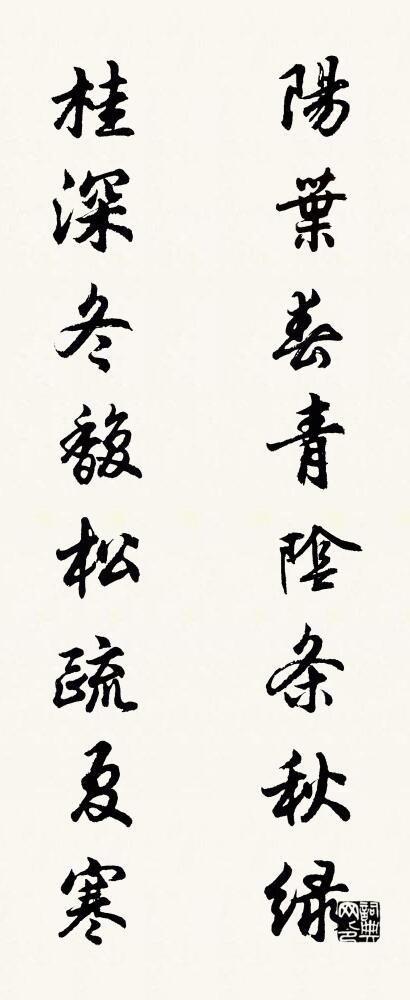 陽葉春青陰条秋緑
桂深冬馥松疏夏寒
詞典网